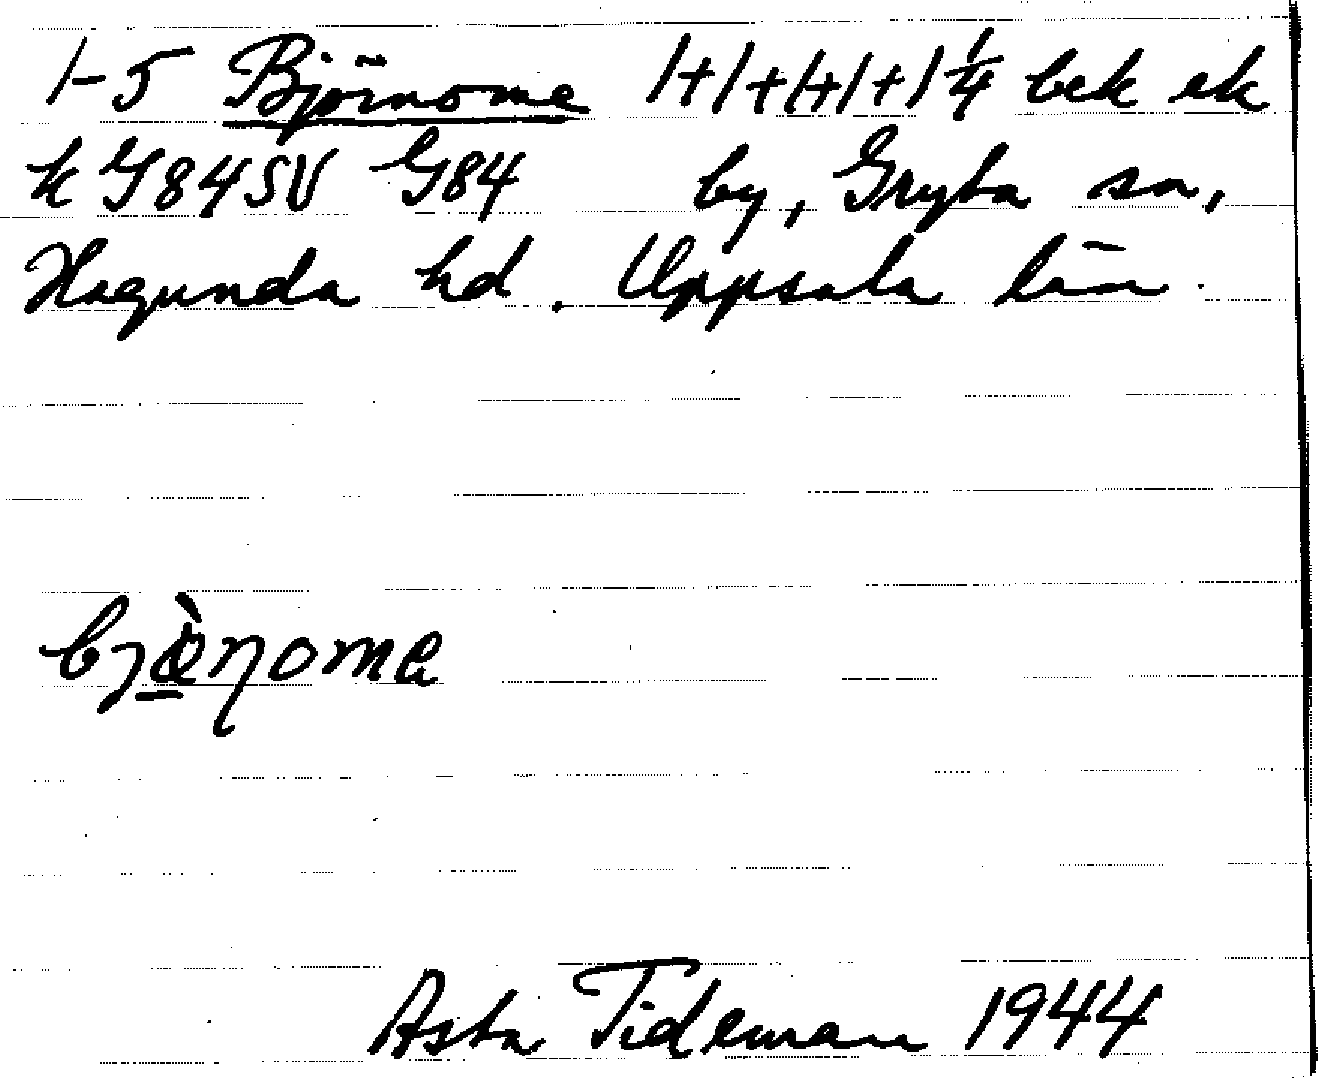 1-5 Björnome 1+1+1+1+1 1/4 bek ek
k G84SV G84 by, Gryta sn,
Hagunda hd. Uppsala län.
bjò̱ƞome
Asta Tideman 1944